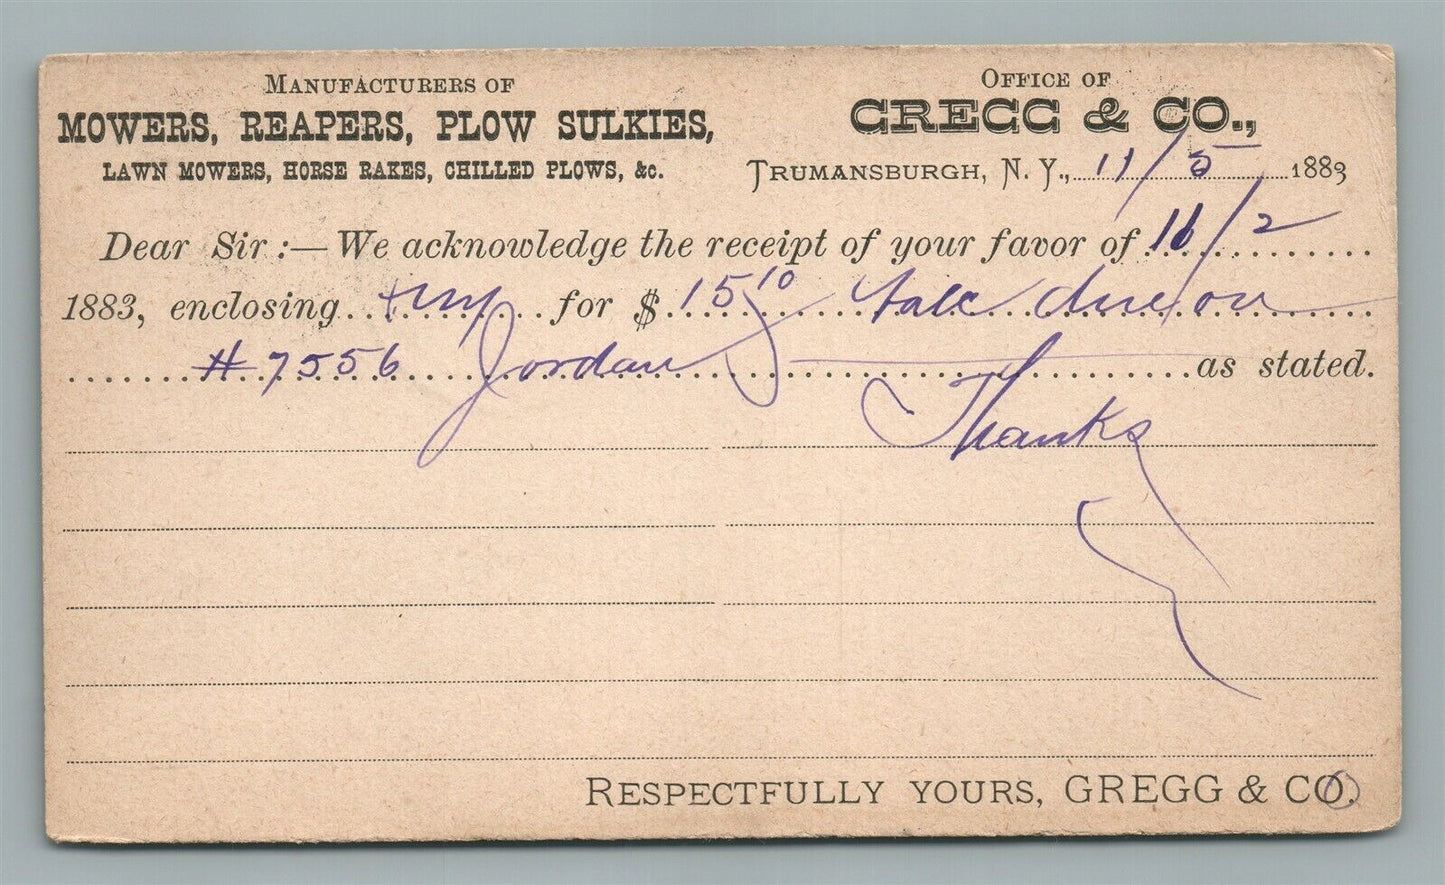 MANUFACTURERS OF
MOWERS, REAPERS, PLOW SULKIES,
LAWN MOWERS, HORSE RAKES, CHILLED PLOWS, &c.
OFFICE OF
GREGG & CO.,
TRUMANSBURGH, N. Y., 11/5 1883
Dear Sir :— We acknowledge the receipt of your favor of 11/2
1883, enclosing for $ 15 10 due on
# 7556 Jordan as stated.
Thanks
RESPECTFULLY YOURS, GREGG & CO.